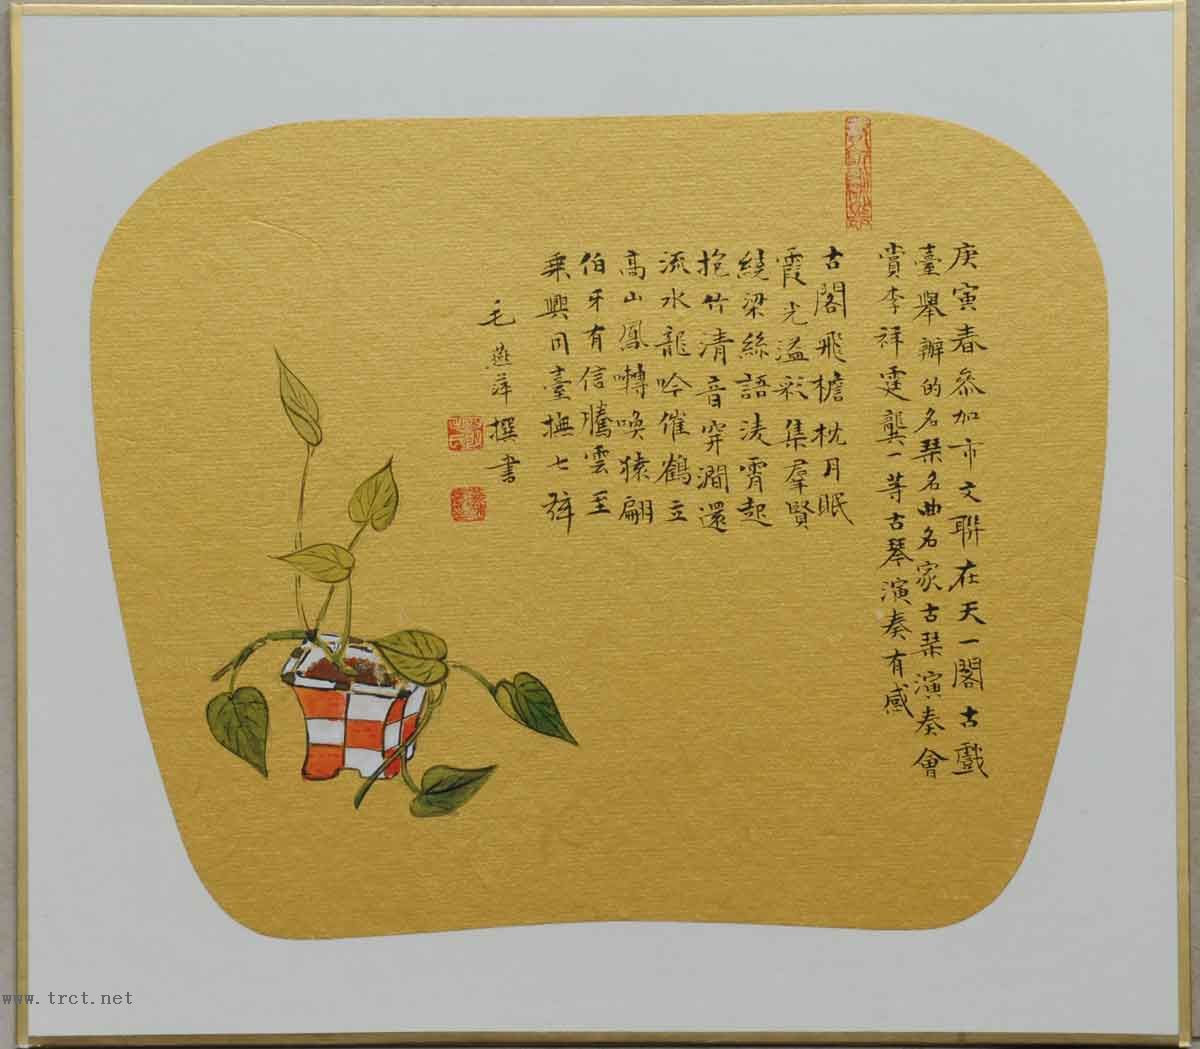 庚寅春参加市文聯在天一閣古戲
臺舉辦的名琹名曲名家古琹演奏會
賞李祥霆龔一等古琴演奏有感
古閣飛檐枕月眠
霞光溢彩集羣賢
繞梁絲語淩霄起
抱竹清音穿澗還
流水龍吟催鶴立
高山鳳囀喚猿翩
伯牙有信騰雲至
乗興同臺撫七弦
毛燕萍撰書
www.trct.net